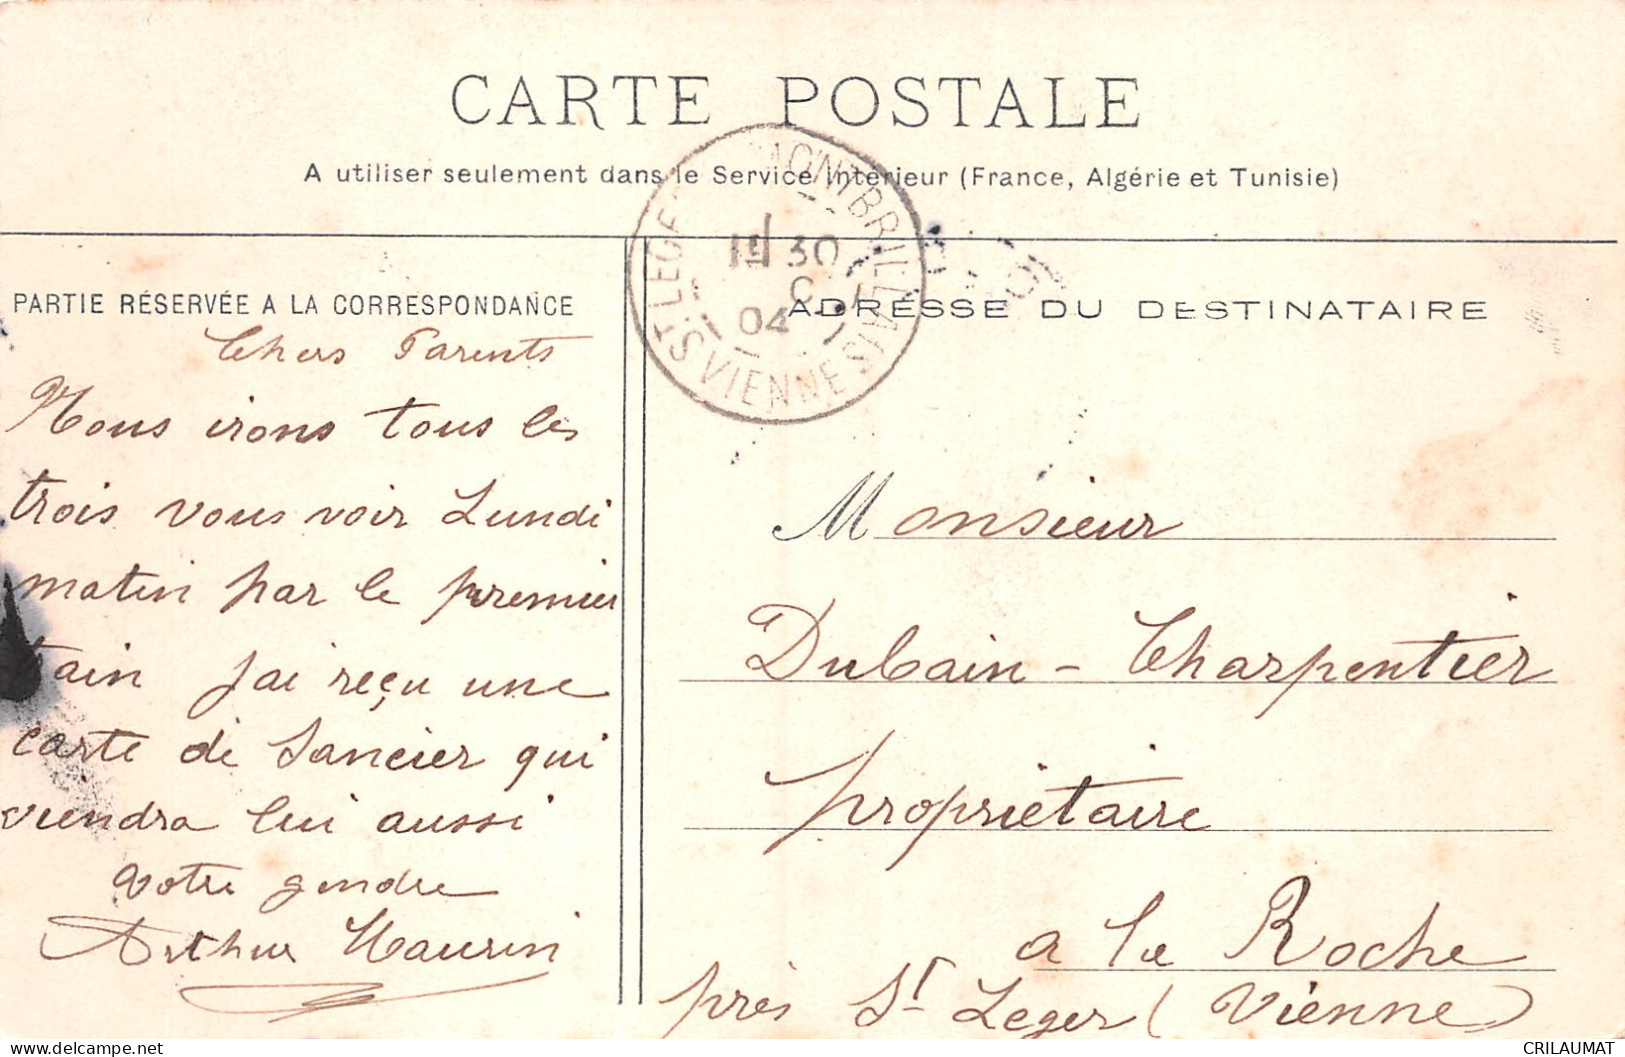 CARTE POSTALE
A utiliser seulement dans le Service Intérieur (France, Algérie et Tunisie)
PARTIE RÉSERVÉE A LA CORRESPONDANCE
Chers Parents
Nous irons tous les
trois vous voir Lundi
matin par le premier
train j'ai reçu une
carte de Sancier qui
viendra lui aussi
votre gendre
Arthur Maurin
ST LEGER MAGNY BRILLAIS
VIENNE
1E 30
04
ADRESSE DU DESTINATAIRE
Monsieur
Dubain - Charpentier
propriétaire
a la Roche
près St Leger (Vienne)
CRILAUMAT
delcampe.net